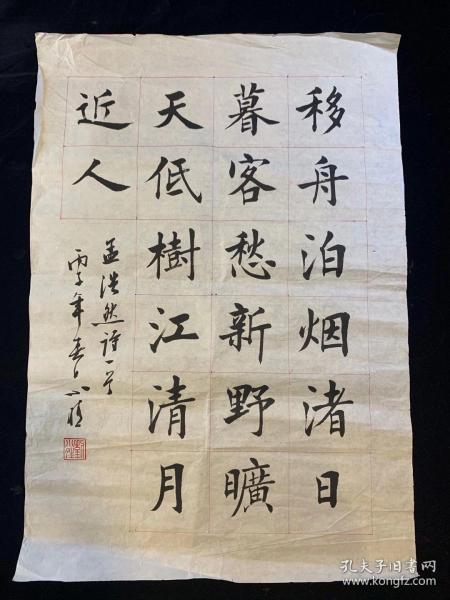 移舟泊烟渚日
暮客愁新野曠
天低樹江清月
近人
孟浩然詩一首
丙子年春月
孔夫子旧书网
www.kongfz.com